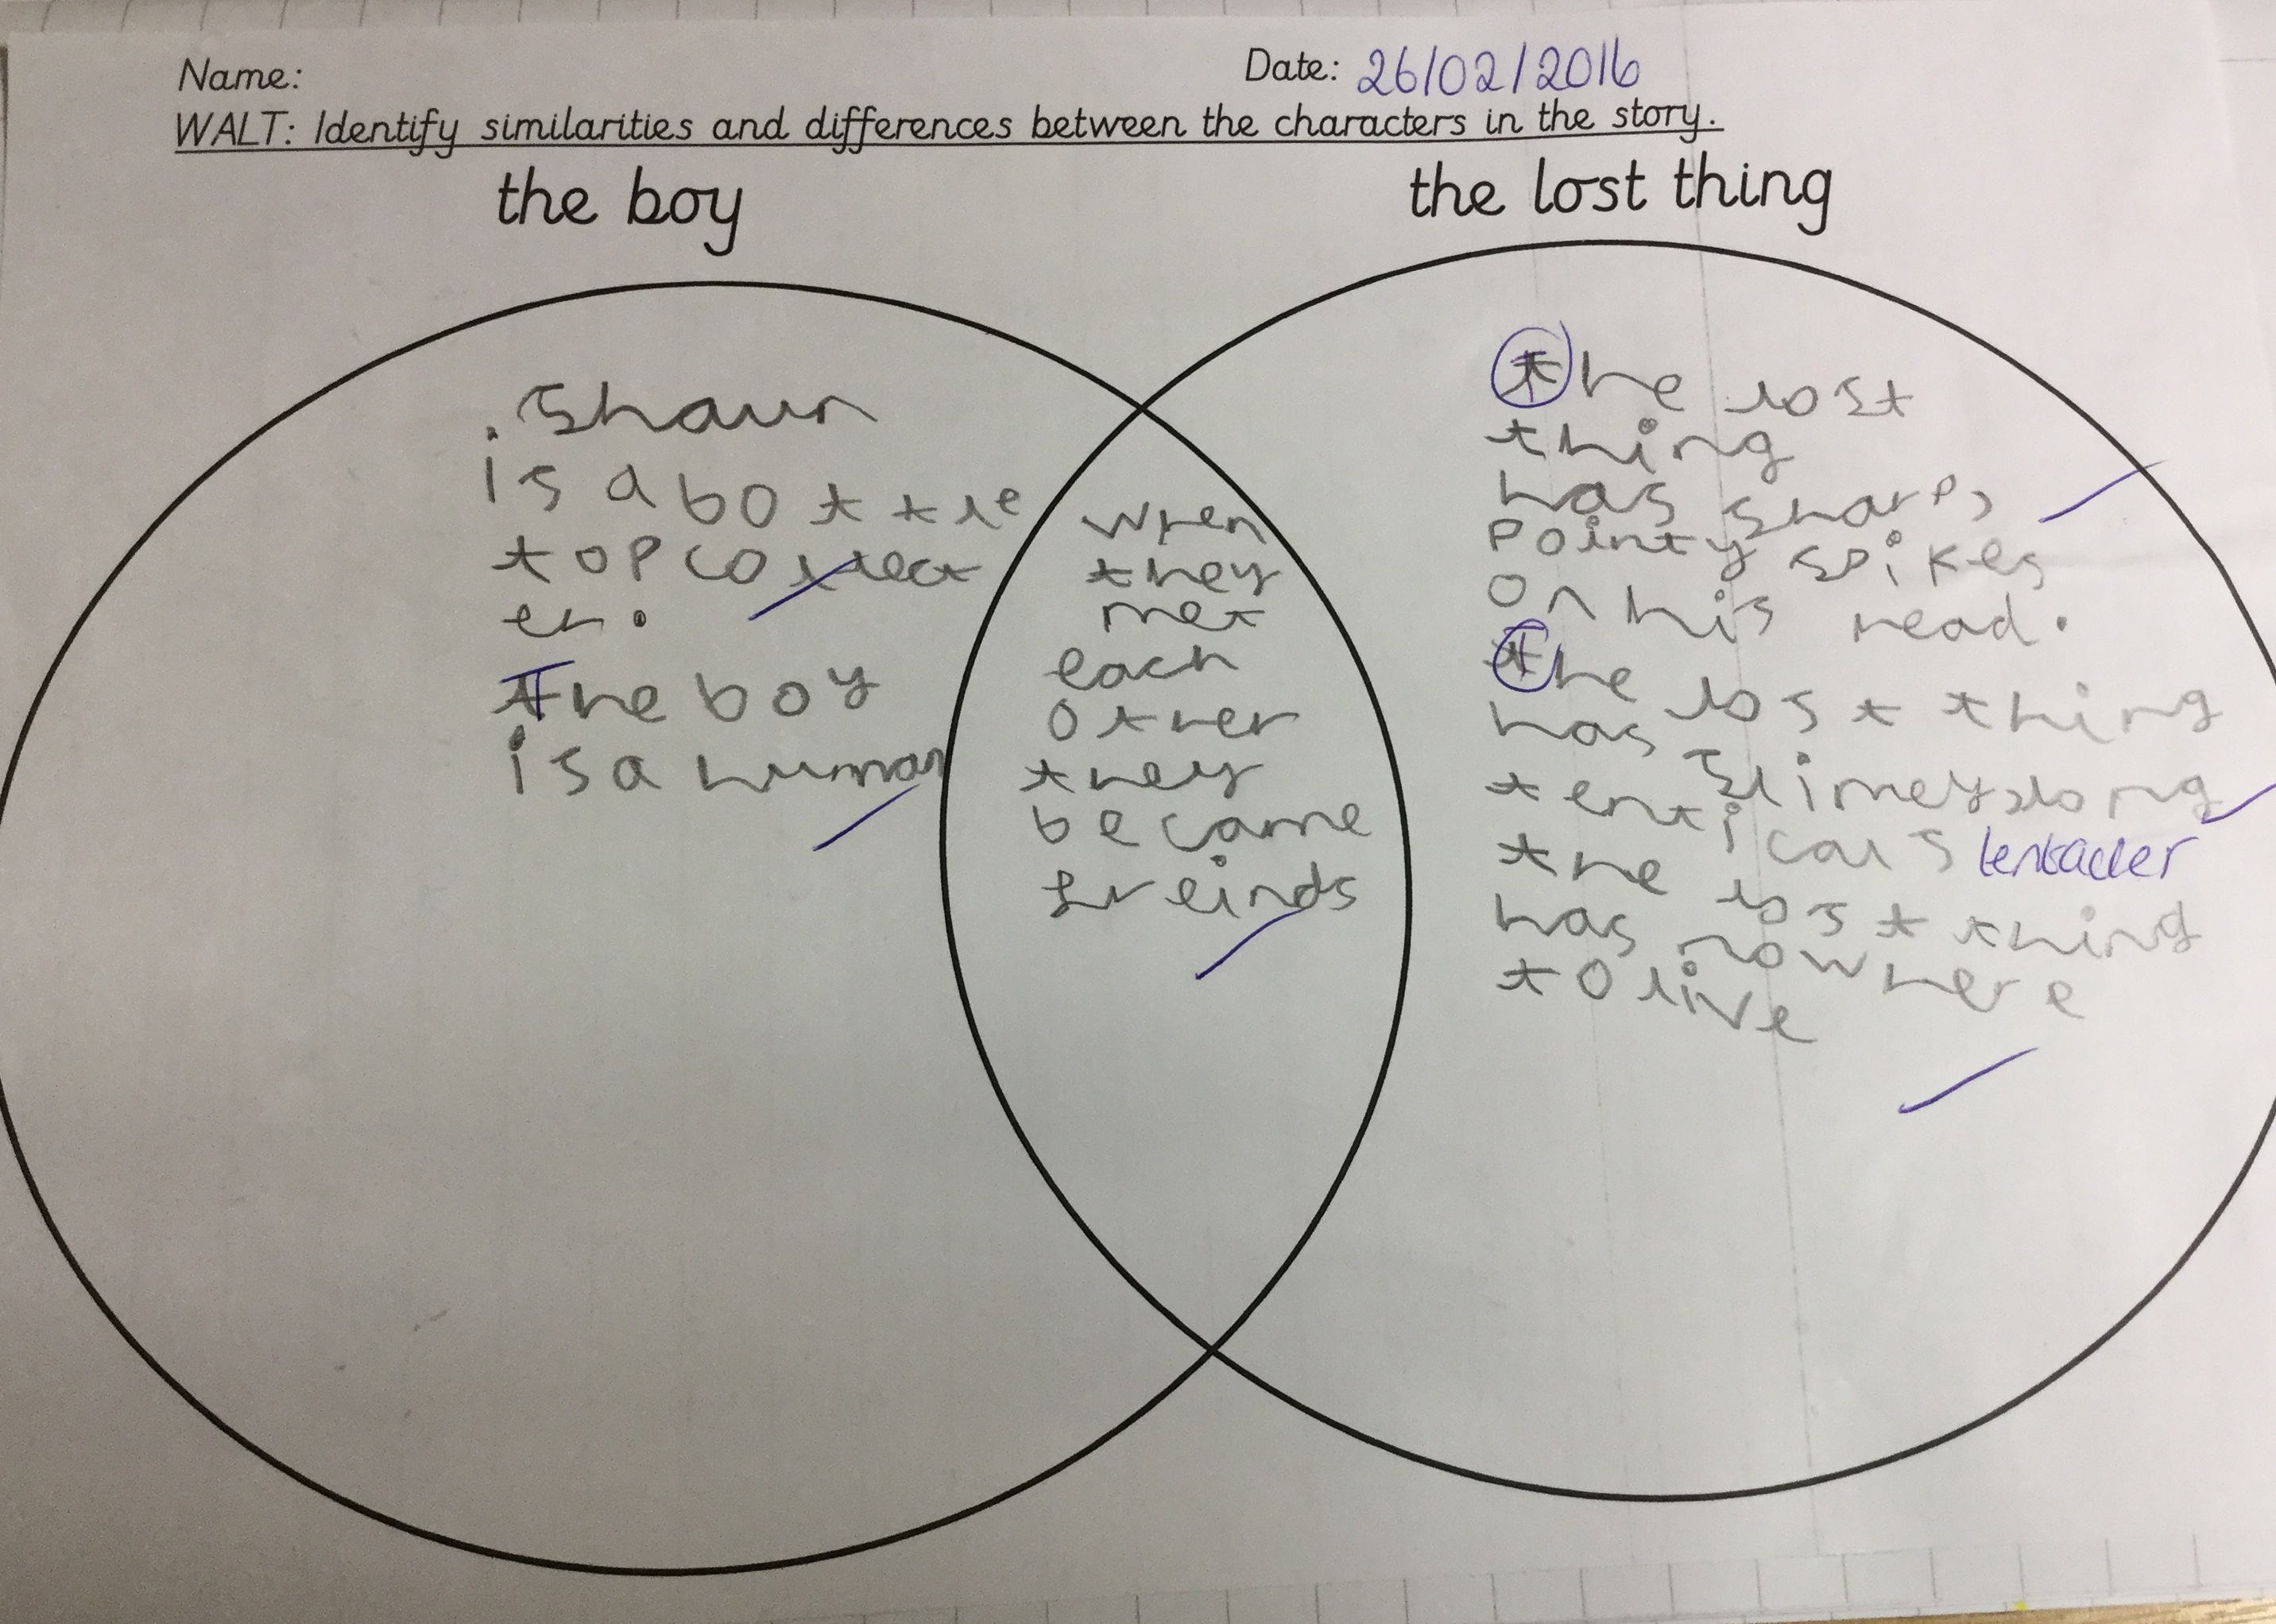 Name:
Date: 26/02/2016
WALT: Identify similarities and differences between the characters in the story.
the boy
the lost thing
. Shaun
is a bottle
top collect
er.
The boy
is a human
when
they
met
each
other
they
became
freinds
The lost
thing
has sharp,
pointy spikes
on his head.
The lost thing
has slimey,long
tenticals tentacles
the lost thing
has nowhere
to live